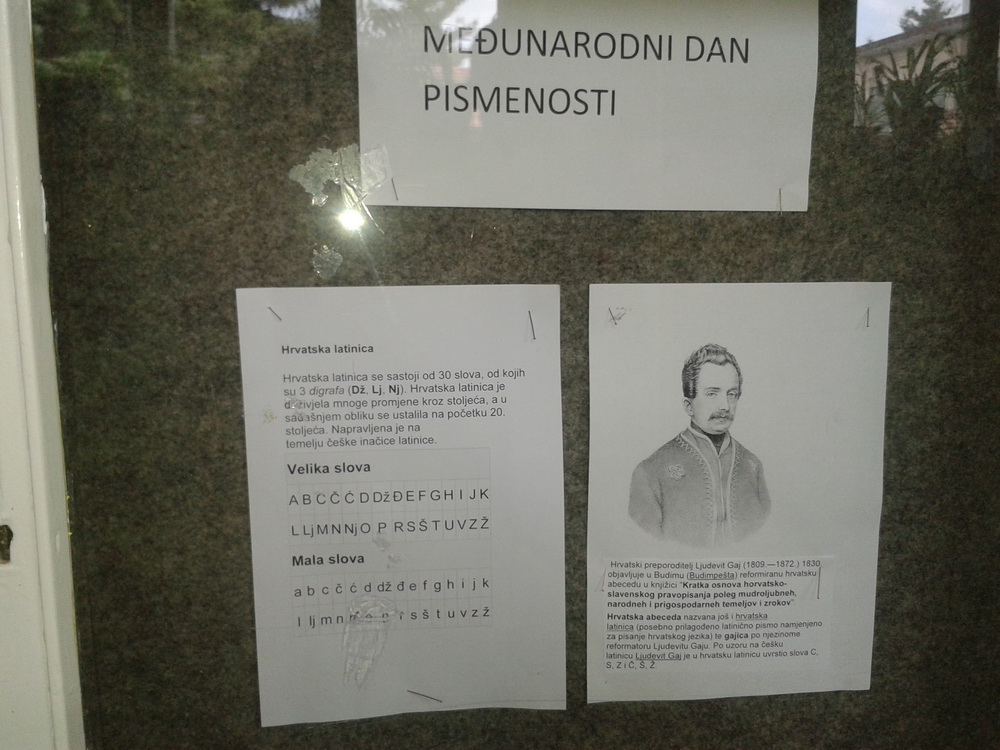 MEĐUNARODNI DAN
PISMENOSTI
Hrvatska latinica
Hrvatska latinica se sastoji od 30 slova, od kojih
su 3 digrafa (Dž, Lj, Nj). Hrvatska latinica je
doživjela mnoge promjene kroz stoljeća, a u
sadašnjem obliku se ustalila na početku 20.
stoljeća. Napravljena je na
temelju češke inačice latinice.
Velika slova
A B C Č Ć D Dž Đ E F G H I J K
L Lj M N Nj O P R S Š T U V Z Ž
Mala slova
a b c č ć d dž đ e f g h i j k
l lj m n r s š t u v z ž
Hrvatski preporoditelj Ljudevit Gaj (1809.—1872.) 1830
objavljuje u Budimu (Budimpešta) reformiranu hrvatsku
abecedu u knjižici "Kratka osnova horvatsko-
slavenskog pravopisanja poleg mudroljubneh,
narodneh i prigospodarneh temeljov i zrokov"
Hrvatska abeceda nazvana još i hrvatska
latinica (posebno prilagođeno latinično pismo namjenjeno
za pisanje hrvatskog jezika) te gajica po njezinome
reformatoru Ljudevitu Gaju. Po uzoru na češku
latinicu Ljudevit Gaj je u hrvatsku latinicu uvrstio slova C,
S, Z i Č, Š, Ž.